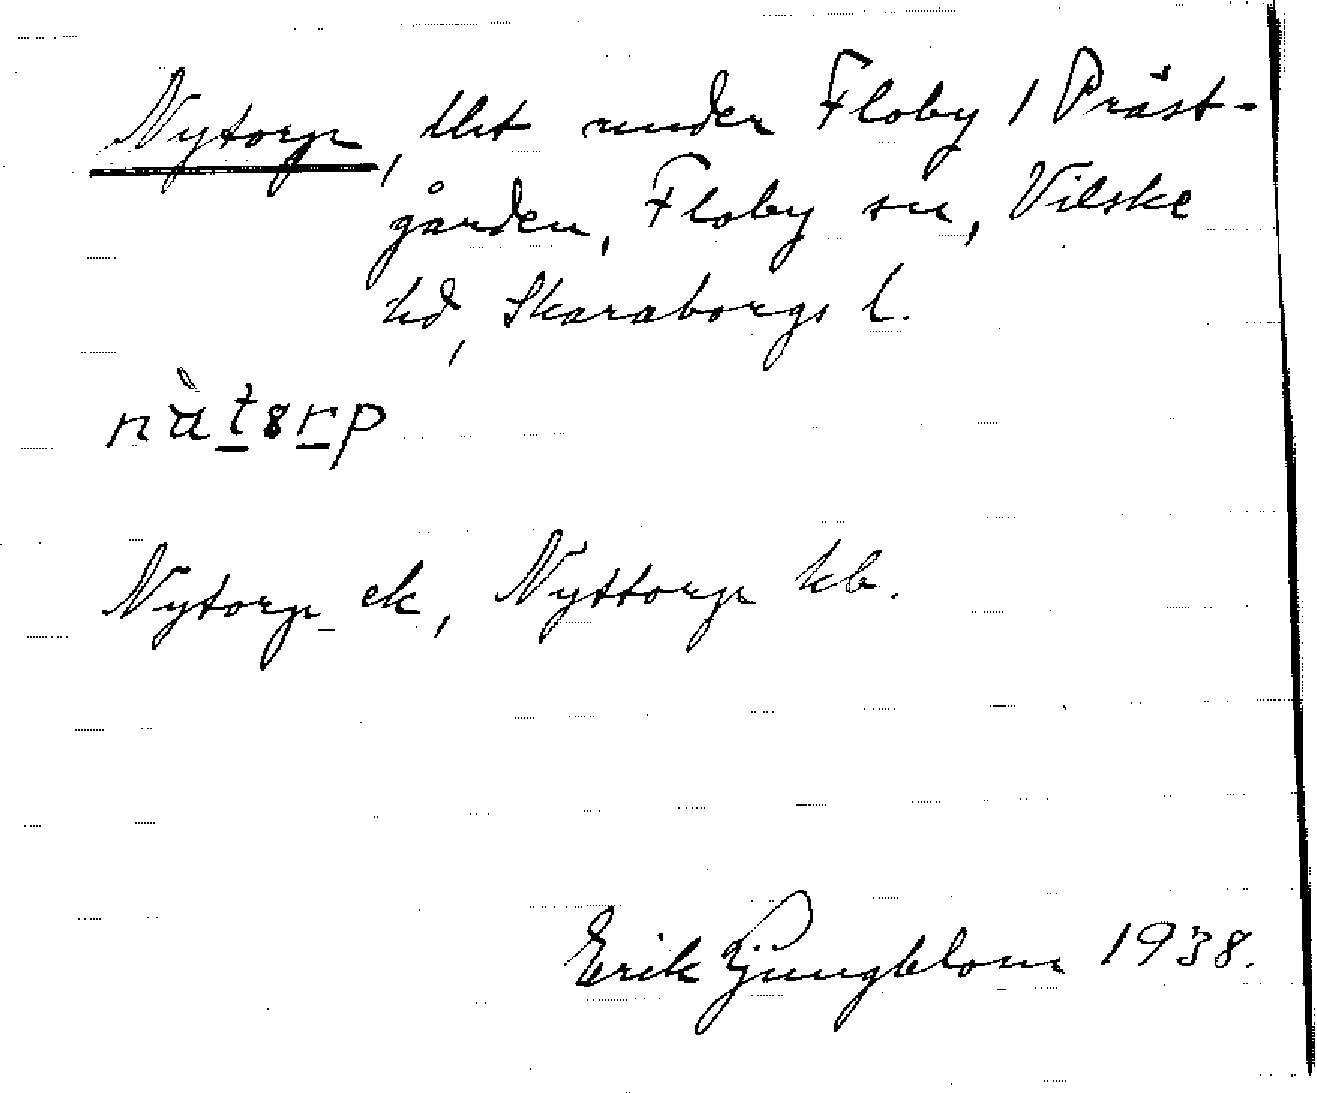 Nytorp, tlht under Floby 1 Präst-
gården, Floby sn, Vilske
hd, Skaraborgs l.
Nytorp ek, Nyttorp kb.
Erik Ljungblom 1938.